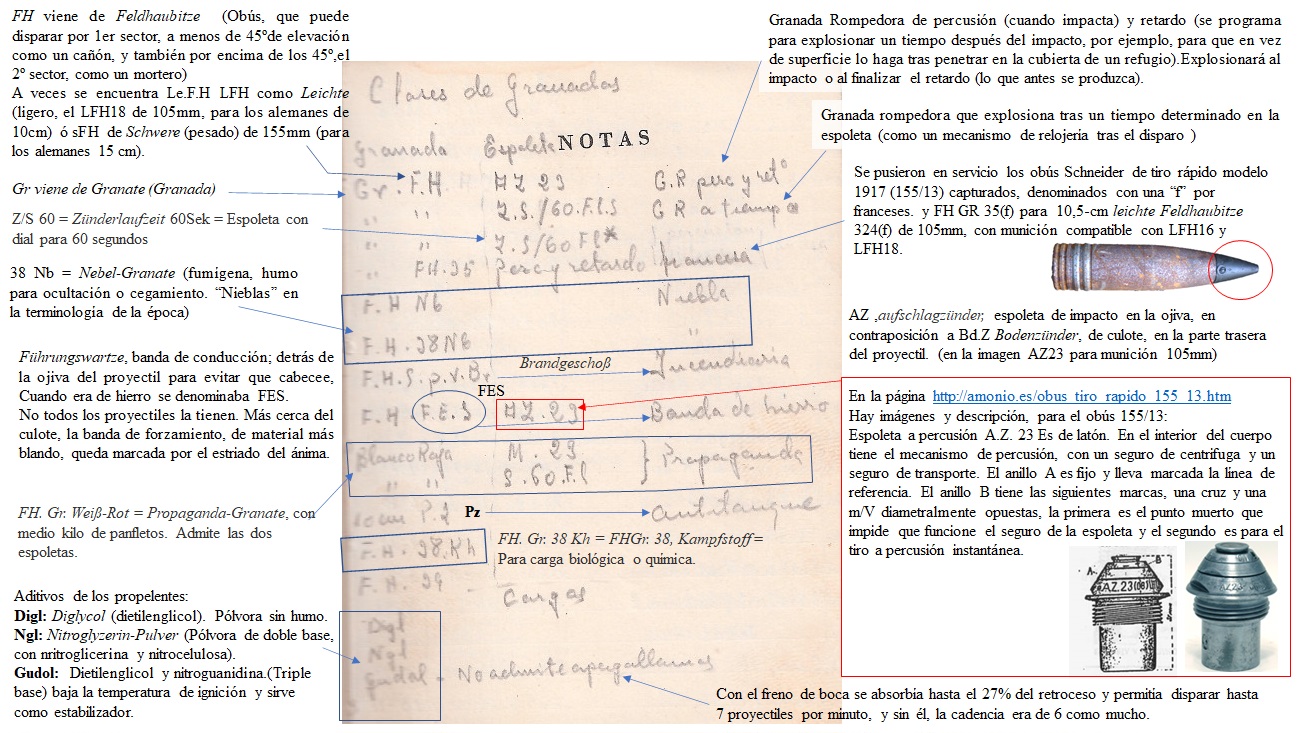 FH viene de Feldhaubitze (Obús, que puede
disparar por 1er sector, a menos de 45ºde elevación
como un cañón, y también por encima de los 45º,el
2º sector, como un mortero)
A veces se encuentra Le.F.H LFH como Leichte
(ligero, el LFH18 de 105mm, para los alemanes de
10cm) ó sFH de Schwere (pesado) de 155mm (para
los alemanes 15 cm).
Gr viene de Granate (Granada)
Z/S 60 = Zünderlaufzeit 60Sek = Espoleta con
dial para 60 segundos
38 Nb = Nebel-Granate (fumígena, humo
para ocultación o cegamiento. “Nieblas” en
la terminología de la época)
Führungswartze, banda de conducción; detrás de
la ojiva del proyectil para evitar que cabecee,
Cuando era de hierro se denominaba FES.
No todos los proyectiles la tienen. Más cerca del
culote, la banda de forzamiento, de material más
blando, queda marcada por el estriado del ánima.
FH. Gr. Weiß-Rot = Propaganda-Granate, con
medio kilo de panfletos. Admite las dos
espoletas.
Aditivos de los propelentes:
Digl: Diglycol (dietilenglicol). Pólvora sin humo.
Ngl: Nitroglyzerin-Pulver (Pólvora de doble base,
con nitroglicerina y nitrocelulosa).
Gudol: Dietilenglicol y nitroguanidina.(Triple
base) baja la temperatura de ignición y sirve
como estabilizador.
Clases de Granadas
NOTAS
Granada Espoleta
Gr. F.H. AZ 23 G.R perc y retº
" " Z.S./60.Fl.S G R a tiempo
" " Z.S/60 Fl*
" FH.35 Perc y retardo francesa
F.H Nb Niebla
F.H.38Nb "
F.H.S.p.v.Br Incendiaria
Brandgeschoß
FES
F.H F.E.S AZ.23 Banda de hierro
Blanco Roja M. 23 } Propaganda
" " S.60.Fl
10cm P.2 Pz antitanque
F.H.38.Kh
FH. Gr. 38 Kh = FHGr. 38, Kampfstoff=
Para carga biológica o química.
F.H.39 - Cargas
Digl
Ngl
Gudol - No admite apagallamas
Granada Rompedora de percusión (cuando impacta) y retardo (se programa
para explosionar un tiempo después del impacto, por ejemplo, para que en vez
de superficie lo haga tras penetrar en la cubierta de un refugio).Explosionará al
impacto o al finalizar el retardo (lo que antes se produzca).
Granada rompedora que explosiona tras un tiempo determinado en la
espoleta (como un mecanismo de relojería tras el disparo )
Se pusieron en servicio los obús Schneider de tiro rápido modelo
1917 (155/13) capturados, denominados con una “f” por
franceses. y FH GR 35(f) para 10,5-cm leichte Feldhaubitze
324(f) de 105mm, con munición compatible con LFH16 y
LFH18.
AZ ,aufschlagzünder; espoleta de impacto en la ojiva, en
contraposición a Bd.Z Bodenzünder, de culote, en la parte trasera
del proyectil. (en la imagen AZ23 para munición 105mm)
En la página http://amonio.es/obus_tiro_rapido_155_13.htm
Hay imágenes y descripción, para el obús 155/13:
Espoleta a percusión A.Z. 23 Es de latón. En el interior del cuerpo
tiene el mecanismo de percusión, con un seguro de centrífuga y un
seguro de transporte. El anillo A es fijo y lleva marcada la línea de
referencia. El anillo B tiene las siguientes marcas, una cruz y una
m/V diametralmente opuestas, la primera es el punto muerto que
impide que funcione el seguro de la espoleta y el segundo es para el
tiro a percusión instantánea.
A B
A.Z.23
Con el freno de boca se absorbía hasta el 27% del retroceso y permitía disparar hasta
7 proyectiles por minuto, y sin él, la cadencia era de 6 como mucho.